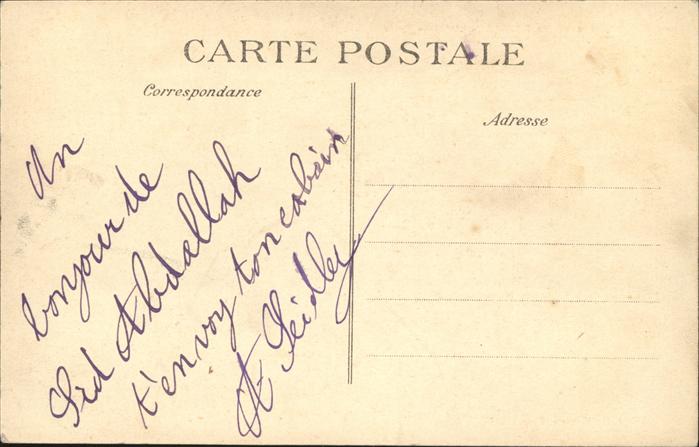 CARTE POSTALE
Correspondance
Adresse
un
bonjour de
Sid Abdallah
t'envoy ton cobain
A Seidley